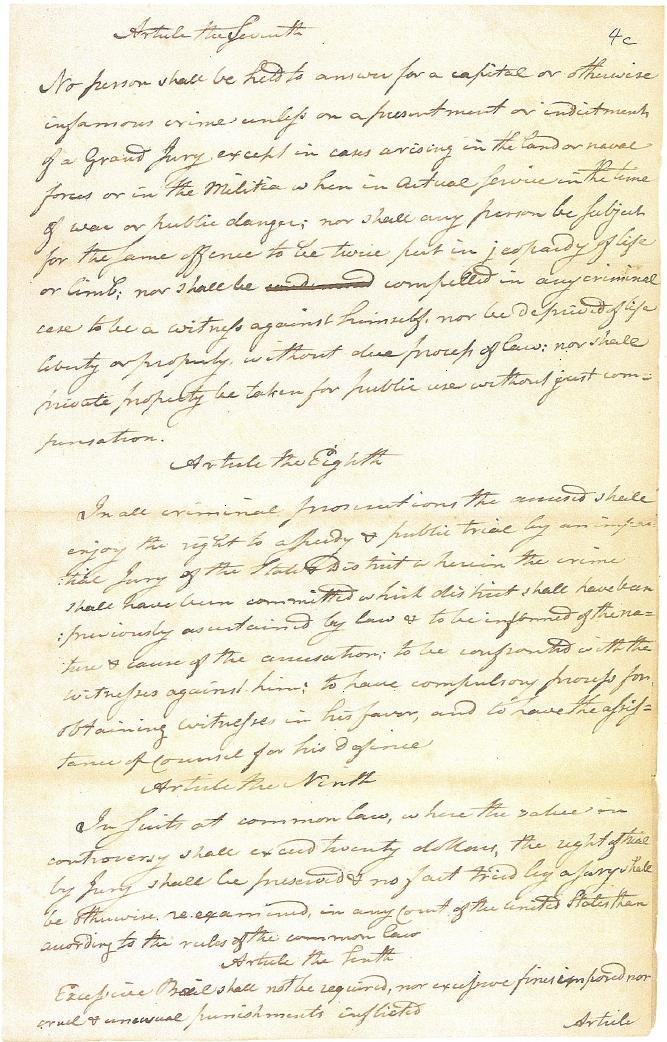 Article the Seventh
4c
No person shall be held to answer for a capital or otherwise
infamous crime unless on a presentment or indictment
of a Grand Jury except in cases arising in the land or naval
forces or in the Militia when in actual service in the time
of war or public danger; nor shall any person be subject
for the same offence to be twice put in jeopardy of life
or limb; nor shall be compelled in any criminal
case to be a witness against himself. nor be deprived of life
liberty or property, without due process of law: nor shall
private property be taken for public use without just com=
pensation.
Article the Eighth
In all criminal prosecutions the accused shall
enjoy the right to a speedy & public trial by an impar=
:tial Jury of the State & District wherein the crime
shall have been committed which district shall have been
:previously ascertained by law & to be informed of the na=
ture & cause of the accusation; to be confronted with the
witnesses against him; to have compulsory process for
obtaining witnesses in his favor, and to have the assis=
tance of Counsel for his defence
Article the Ninth
In suits at common law, where the value in
controversy shall exceed twenty dollars, the right of trial
by Jury shall be preserved & no fact tried by a jury shall
be otherwise re.examined, in any Court of the united States than
according to the rules of the common law
Article the Tenth
Excessive Bail shall not be required, nor excessive fines imposed nor
cruel & unusual punishments inflicted
Article